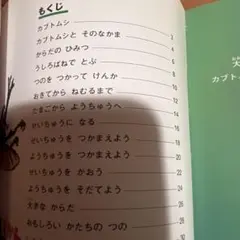 もくじ
カブトムシ 2
カブトムシと そのなかま 4
からだの ひみつ 6
うしろばねで とぶ 8
つのを つかって けんか 10
おきてから ねむるまで
たまごから ようちゅうへ
せいちゅうに なる
せいちゅうを つかまえよう
ようちゅうを つかまえよう
せいちゅうを かおう
ようちゅうを そだてよう 28
大きな からだ 30
おもしろい かたちの つの 32
カブト